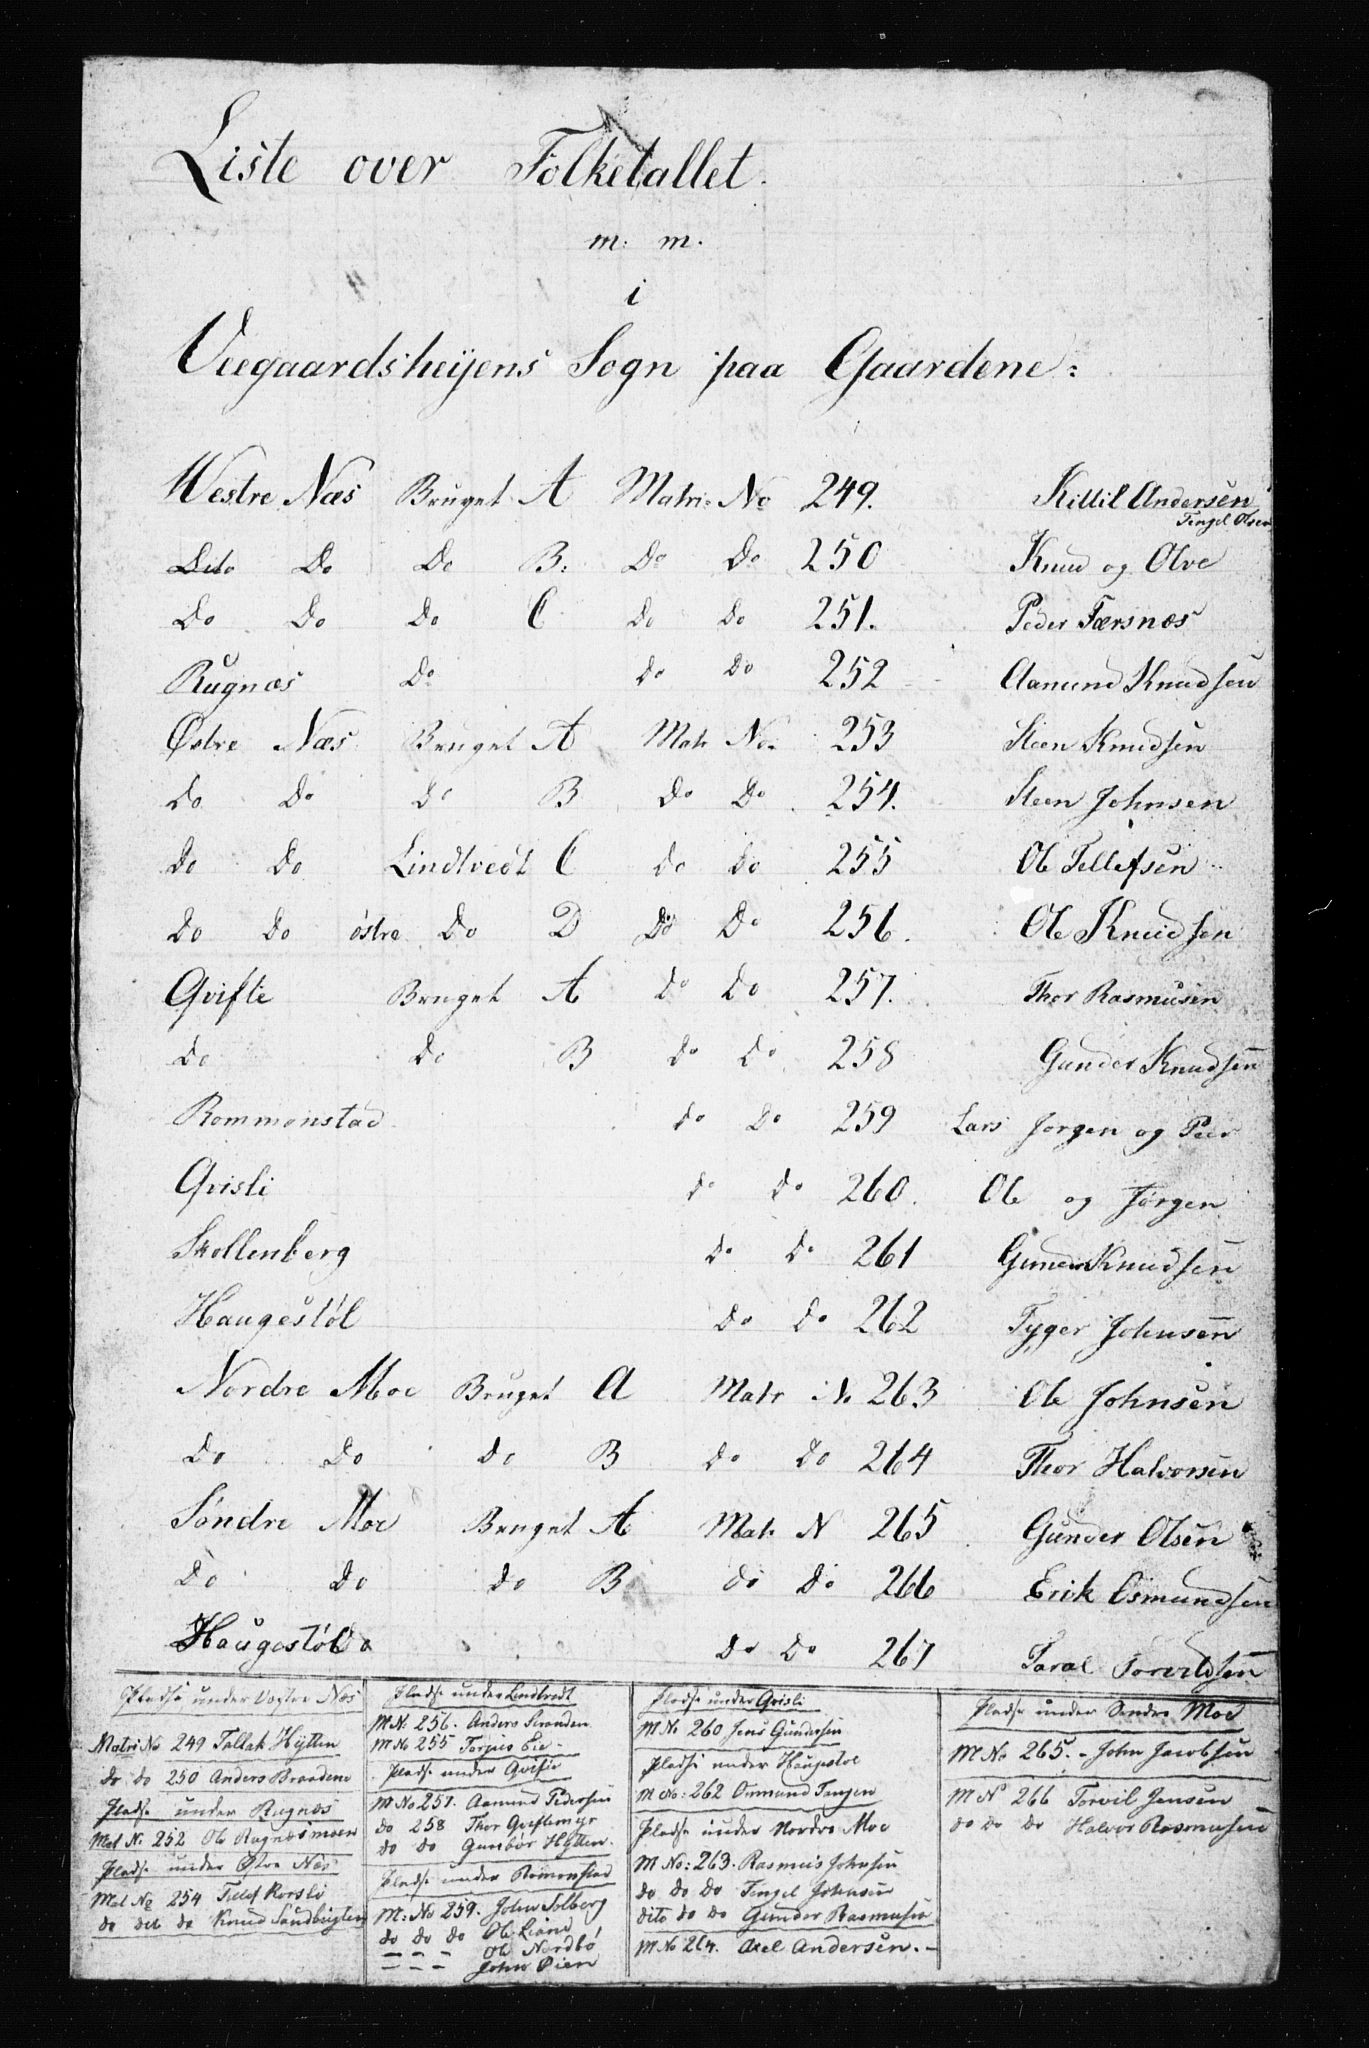 Liste over Folketallet.
m. m.
i
Veegaardsheijens Sogn paa Gaardene:
Westre Næs Bruget A Matri: No 249. Kittil Andersen
Tengel Olsen
Dito Do Do B: Do Do 250 Knud og Olve
Do Do Do C Do Do 251. Peder Færsnæs
Rugnæs Do Do Do 252 Aamund Knudsen
Østre Næs Bruget A Matr No. 253 Steen Knudsen
Do Do Do B Do Do 254. Steen Johnsen
Do Do Lindtvedt C Do Do 255 Ole Tellefsen
Do Do østre Do D Do Do 256. Ole Knudsen
Qvifte Bruget A Do Do 257. Thor Rasmusen
Do Do B Do Do 258 Gunder Knudsen
Rommonstad Do Do 259 Lars Jørgen og Peer
Qvisli Do Do 260. Ole og Jørgen
Skollenberg Do Do 261 Gunder Knudsen
Haugestøl Do Do 262 Tyger Johnsen
Nordre Moe Bruget A Matr No 263 Ole Johnsen
Do Do Do B Do Do 264 Thor Halvorsen
Søndre Moe Bruget A Matr N 265 Gunder Olsen
Do Do Do B Do Do 266 Erik Osmundsen
Haugestøl Do Do 267 Taral Torvildsen
Pladse under Vestre Næs
Matri No 249 Tallak Hytten
do do 250 Anders Braadene
Pladse under Rugnæs
Mat N. 252 Ole Rugnæsmoen
Pladse under Østre Næs
Mat No 254 Tellef Korsli
do do do Knud Sandbugten
Pladse under Lindtvedt
M N. 256. Anders Stranden
M No 255 Torjus Eie
Pladse under Qvifte
M No 257. Aamund Pedersen
do 258 Thor Qviftemyr
do do Gunbør Hytten.
Pladse under Romonstad
M: No 259. John Solberg
do do do Ole Liane
— — — Ole Nordbø
— — — John Øien
Pladse under Qvisli
M No 260 Jens Gundersen
Pladse under Haugestøl
M No: 262 Osmund Tangen
Pladse under Nordre Moe
M No: 263. Rasmus Johnsen
do do do Tengel Johnsen
dito do do Gunder Rasmusen
M No 264. Axel Andersen. –
Pladse under Søndre Moe
M No 265. - John Jacobsen
M No 266 Torvil Jensen
do do do Halvor Rasmusen